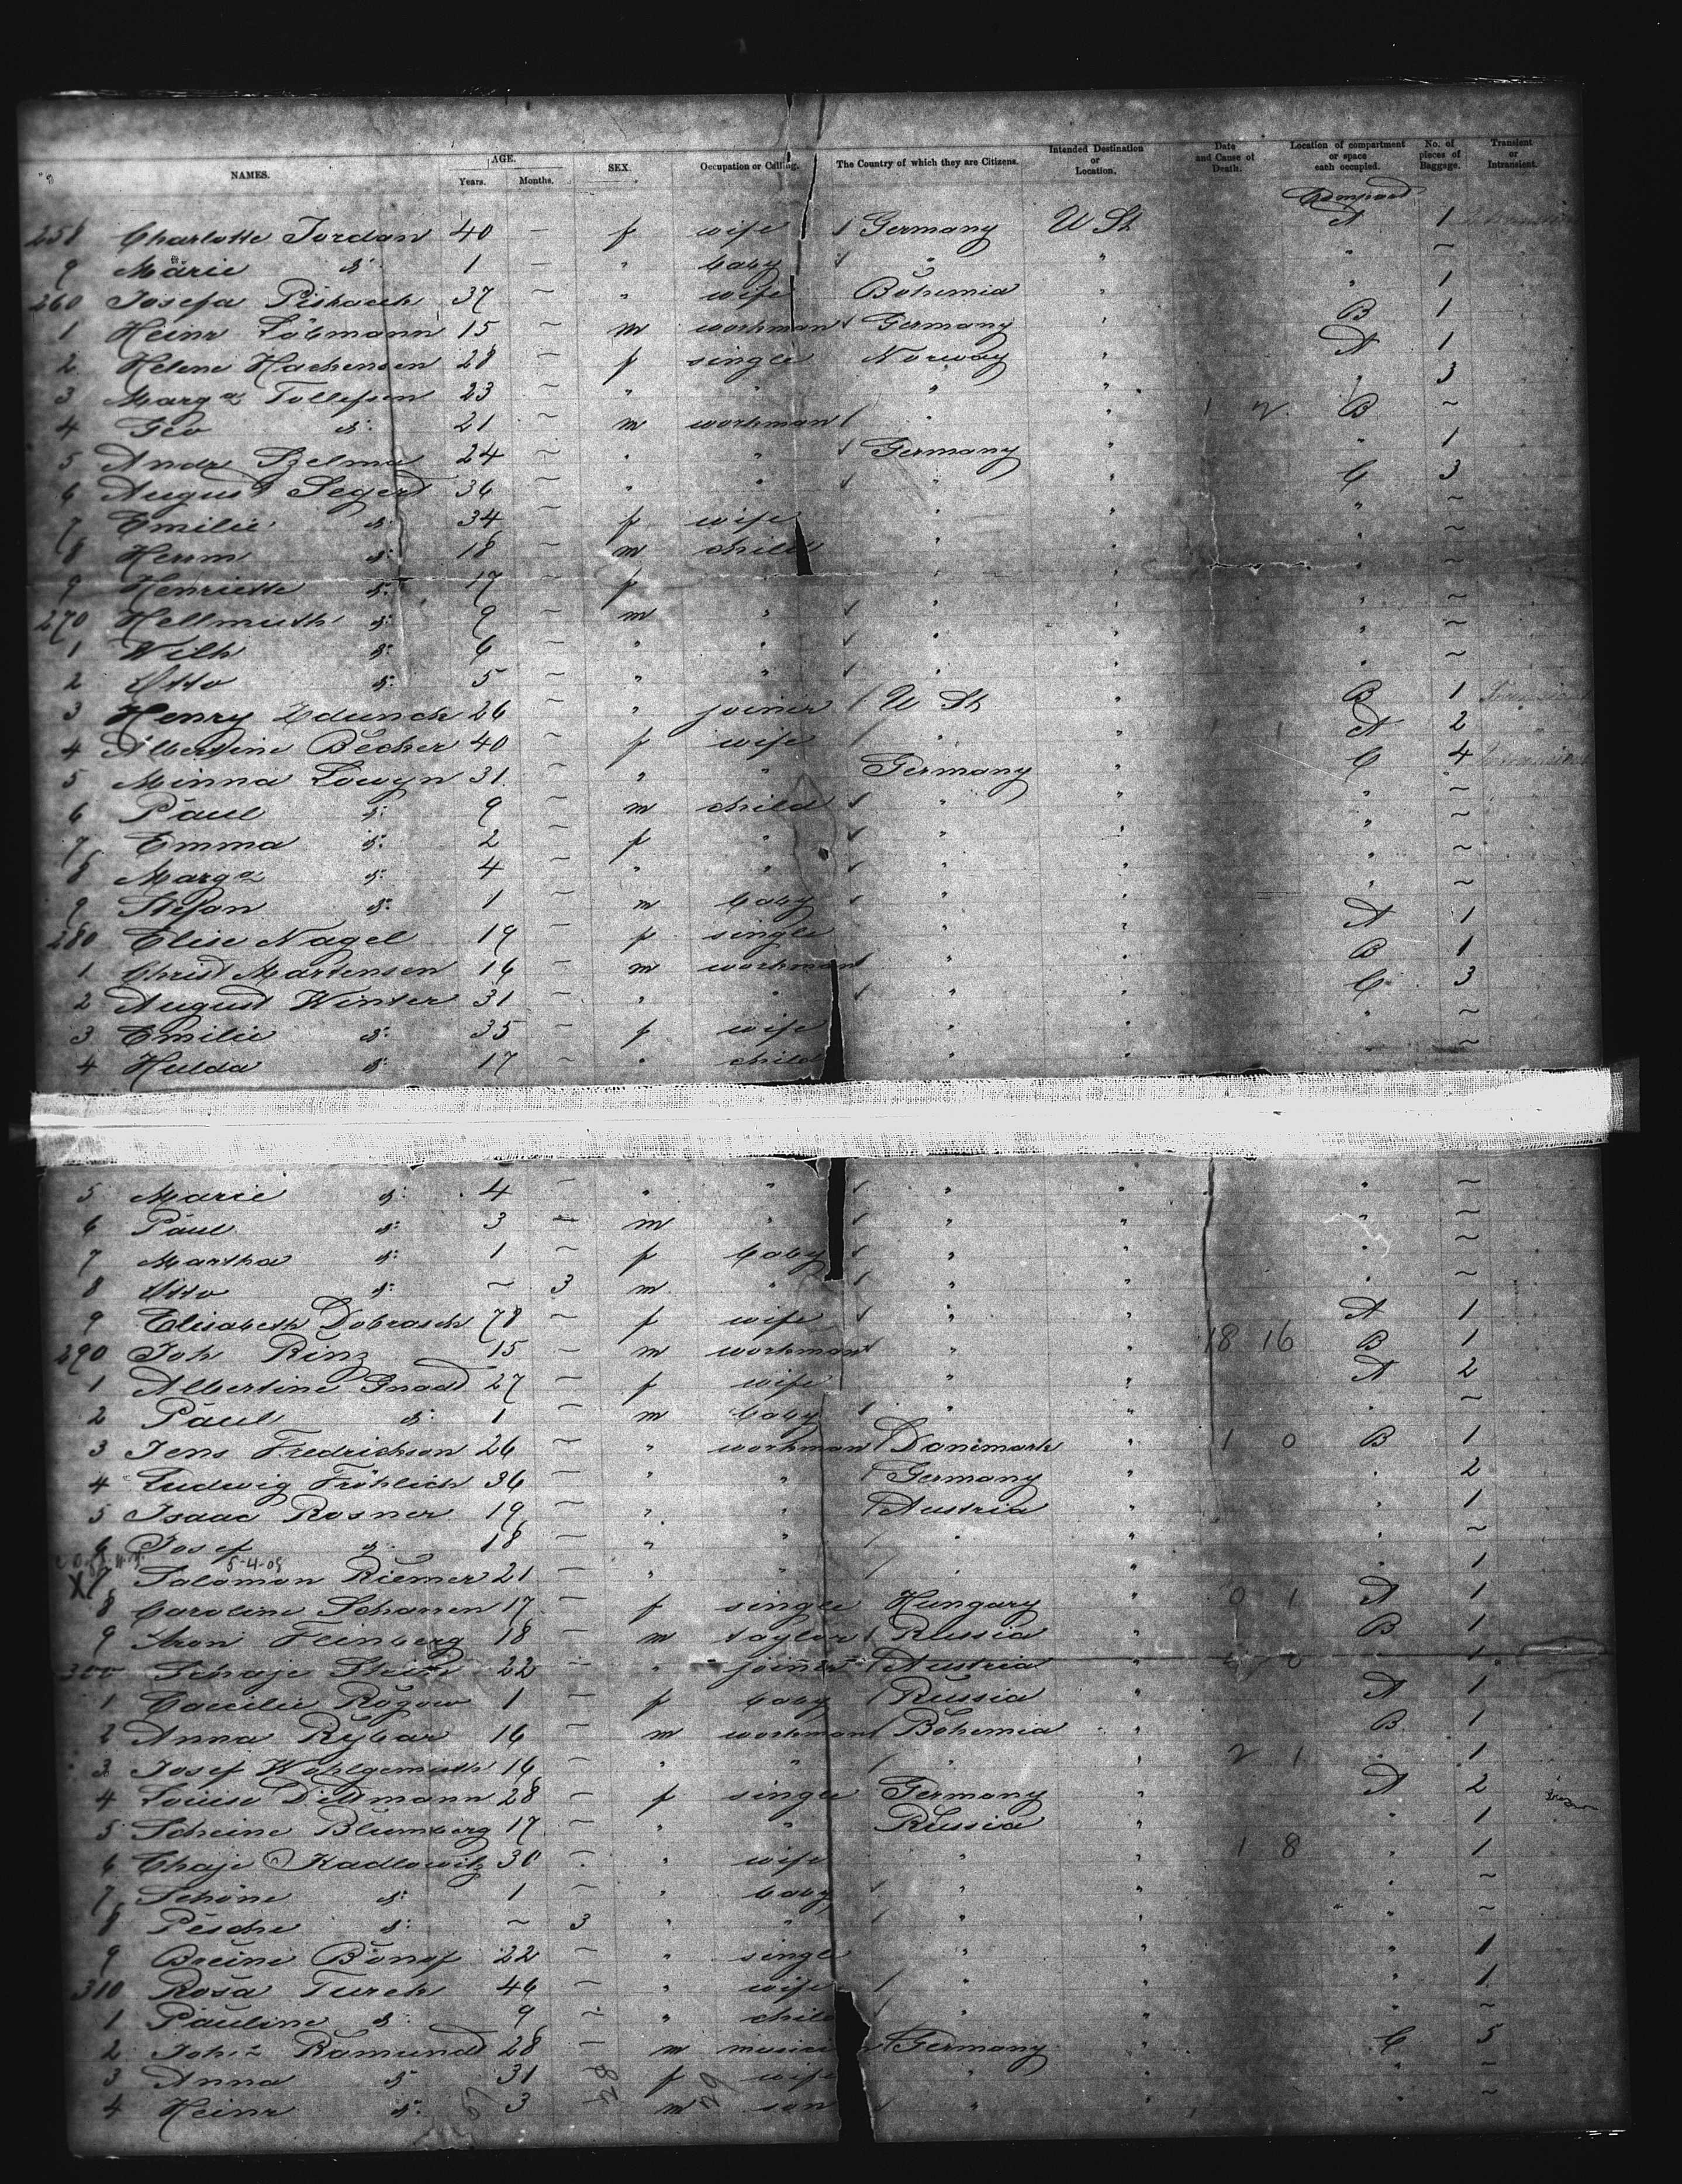 NAMES. AGE. Years. Months. SEX. Occupation or Calling. The Country of which they are Citizens. Intended Destination or Location. Date and Cause of Death. Location of compartment or space each occupied. No. of pieces of Baggage. Transient or Intransient.
258 Charlotte Jordan 40 — f wife / Germany U St A 1
9 Marie d: 1 — " baby / " " " ~
260 Josefa 37 ~ " wife Bohemia " " 1
1 Heinr Löbmann 15 ~ m workman / Germany " B 1
2 Helene 28 ~ f single Norway " A 1
3 Marg a Tollefsen 23 ~ " " " " " 3
4 Geo d: 21 ~ m workman / " " 1 2 B ~
5 Andr Szelma 24 ~ " " / Germany " " 1
6 August Segert 36 ~ " " / " " C 3
7 Emilie d: 34 ~ f wife " " " ~
8 Herm d: 18 ~ m child " " " ~
9 Henriette d: 17 ~ f " " " ~
270 Hellmuth d: 9 ~ m " / " " " ~
1 Wilh d: 6 ~ " " / " " " ~
2 Otto d: 5 ~ " " / " " " ~
3 Henry 26 ~ " joiner / U St " B 1
4 Albertine Becher 40 ~ f wife / " " A 2
5 Minna 31 ~ " " Germany " C 4
6 Paul d: 9 ~ m child / " " " ~
7 Emma d: 2 ~ f " / " " " ~
8 Marg a d: 4 ~ " " / " " " ~
9 Stefan d: 1 ~ m baby / " " " ~
280 Elise Nagel 19 ~ f single " " A 1
1 Christ Martensen 16 ~ m workman " " B 1
2 August Winter 31 ~ " " / " " C 3
3 Emilie d: 35 ~ f wife " " " ~
4 Hulda d: 17 ~ " child " " ~
5 Marie d: 4 ~ " " / " " " ~
6 Paul d: 3 — m " / " " " ~
7 Martha d: 1 ~ f baby / " " " ~
8 Otto d: ~ 3 m " / " " " ~
9 Elisabeth Dobrasch 78 — f wife / " " A 1
290 Joh Rinz 15 — m workman " " 18 16 B 1
1 Albertine Gnadt 27 — f wife " " A 2
2 Paul d: 1 — m baby / " " " ~
3 Jens Fredrichson 26 — " workman / Danimark " 1 0 B 1
4 Ludwig Fröhlich 36 — " " / Germany " " 2
5 Isaac Rosner 19 ~ " " / Austria " " 1
6 Josef d: 18 ~ " " / " " ~
5-4-09
X 7 Salomon Riemer 21 ~ " " / " " " 1
8 Caroline 17 ~ f single Hungary " 0 1 A 1
9 Aron Feinberg 18 — m taylor / Russia " B 1
300 Schaje 22 — " joiner / Austria " 1
1 Caecilie Rogow 1 — f baby / Russia A 1
2 Anna Rybar 16 — m workman / Bohemia " B 1
3 Josef Wohlgemuth 16 ~ " " / " " 2 1 " 1
4 Louise Dittmann 28 — f single Germany " A 2
5 Scheine Blumberg 17 ~ " " Russia " " 1
6 Chaje Kadlowitz 30 ~ " wife " " 1 8 " 1
7 Schöne d: 1 ~ " baby / " " ~
8 Pesche d: ~ 3 " " / " " " ~
9 Breine 22 — " single " " " 1
310 Rosa Turek 46 — " wife / " " " 1
1 Pauline d: 9 ~ " child / " " " ~
2 Ramund 28 — m musician / Germany " C 5
3 Anna d: 31 f wife " " " ~
4 Heinr d: 3 m son / " " " ~